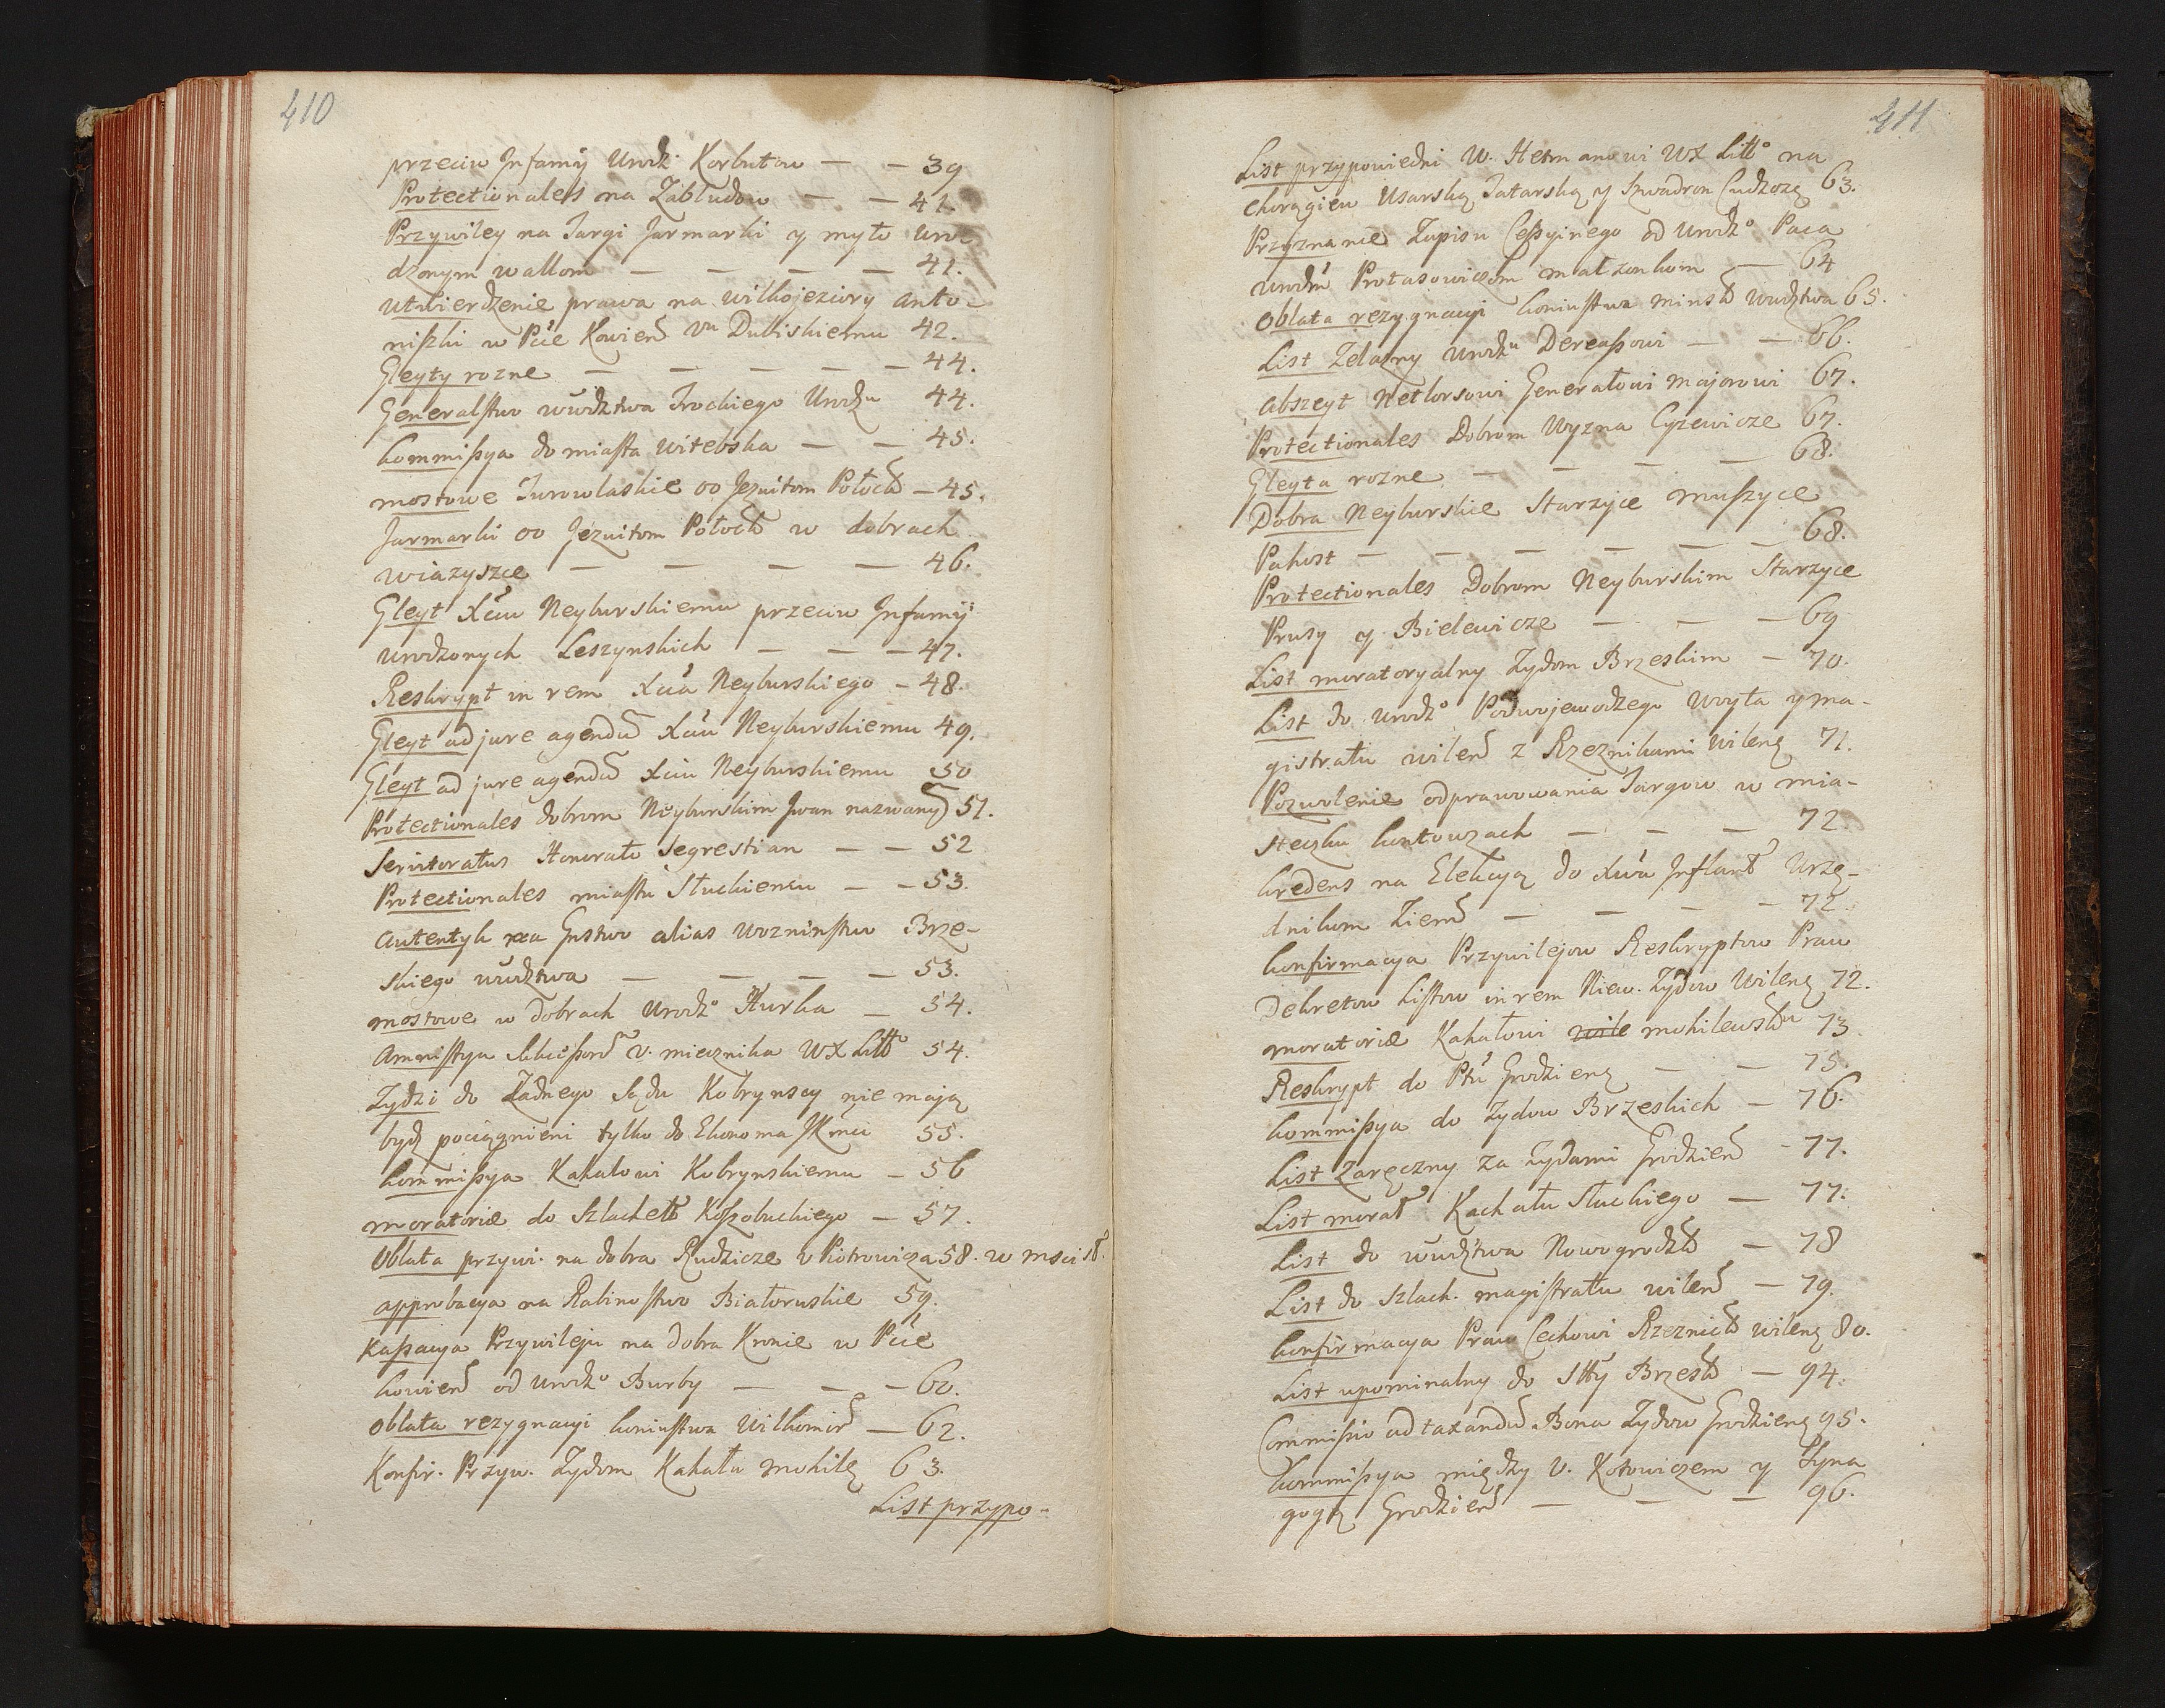 410
przeciw Infamij Urodz. Korbutow — — 39
Protectionales na Zabludow — — 41
Przywiley na Targi Jarmarki y myto uro-
dzonym wallom — — — — 41.
utwierdzenie prawa na wilkojeziory anto-
niszki w Pcie Kowień Vu Dubiskiemu 42.
Gleyty rozne — — — — — 44.
Generalstwo wudztwa Trockiego Urodzu 44.
kommissya do miasta witebska — — 45.
mostowe Turowlaskie oo Jezuitom Połock — 45.
Jarmarki oo Jezuitom Połock w dobrach
wiazyszce — — — — 46.
Gleyt Xciu Neyburskiemu przeciw Infamij
urodzonych Leszynskich — — — 47.
Reskrypt in rem Xcia Neyburskiego — 48.
Gleyt ad jure agendū Xciu Neyburskiemu 49.
Gleyt ad jure agendū Xciu Neyburskiemu 50
Protectionales dobrom Neyburskim Jwan nazwany 51.
Servitoratus Honorato Segrestian — — 52
Protectionales miastu Słuckiemu — — 53.
Autentyk na Gnstwo alias wozninstwo Brze-
skiego wudztwa — — — — 53.
mostowe w dobrach urodzo Hurka — 54.
Amnistya v. miecznika WX Litto 54.
Zydzi do Zadnego Sądu Kobrynscy nie mają
bydz pociągnieni tylko do Ekonoma JKmci 55.
kommissya Kahalowi Kobrynskiemu — 56
moratorie do Szlachet Koszobuckiego — 57.
Oblata przywi. na dobra Rudzicze v Piotrowicza 58. w mscisł.
approbacya na Rabinostwo Białoruskie 59.
Kassacya Przywileju na dobra Kronie w Pcie
kowień od urodzo Burby — — — 60.
Oblata rezygnacyi koniustwa Wilkomir — 62.
Konfir. Przyw. Zydom Kahału mohile 63.
List przypo-
411
List przypowiedni W. Hetmanowi WX Litto na
choragiew Usarską Tatarską y Szwadron Cudzoz 63.
Przyznanie Zapisu Cessyinego od urodzo Paca
urodzm Protasowiczom małzonkom — 64
Oblata rezygnacyi koniustwa minsk wudztwa 65.
List Zelazny urodzu Dereassowi — — 66.
Abszeyt Netlorsowi Generałowi majorowi 67.
Protectionales Dobrom Wyzna Cyzewicze 67.
Gleyta rozne — — — — 68.
Dobra Neyburskie Starzyce muszyce
Pahost — — — — — — 68.
Protectionales Dobrom Neyburskim Starzyce
Prusy y Bielewicze — — — 69
List moratoryalny Zydom Brzeskim — 70.
List do urodzo Podwojewodzego woyta y ma-
gistratu wileń z Rzeznikami wileń 71.
Pozwolenie odprawowania Targow w mia-
steczku kontowzach — — — 72
kredens na Elekcyą do Xwa Inflant Urzę-
dnikom Ziem — — — — 72.
konfirmacya Przywilejow Reskryptow Praw
Dekretow Listow in rem Niew. Zydow wileń 72.
moratorie Kahałowi wile mohilewsku 73.
Reskrypt do Ptu Grodzień — — 75.
kommissya do Zydow Brzeskich — 76.
List Zaręczny za Zydami Grodzień — 77.
List morat Kachału Słuckiego — 77.
List do wudztwa Nowogrodzk — 78
List do Szlach. magistratu wileń — 79.
konfirmacya Praw Cechowi Rzeznick wileń 80.
List upominalny do Stty Brzesk — 94.
Commissio ad taxandū Bona Zydow Grodzień 95.
kommissya między V. Kotowiczem y Syna
gogą Grodzień — — — 96.